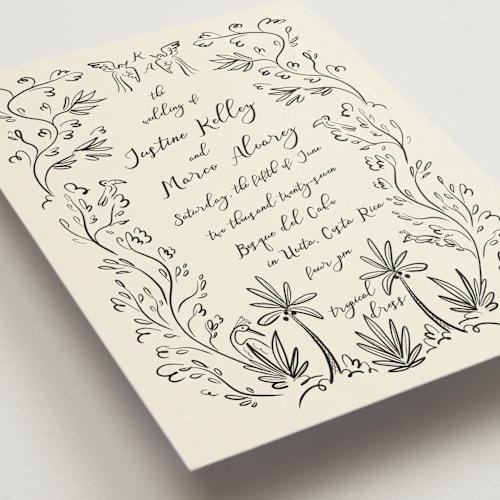 K
A
the
wedding of
Justine Kelley
and
Marco Alvarez
Saturday, the fifth of June
two thousand twenty-seven
Bosque del Cabo
in Uvita, Costa Rica
four pm
tropical
dress